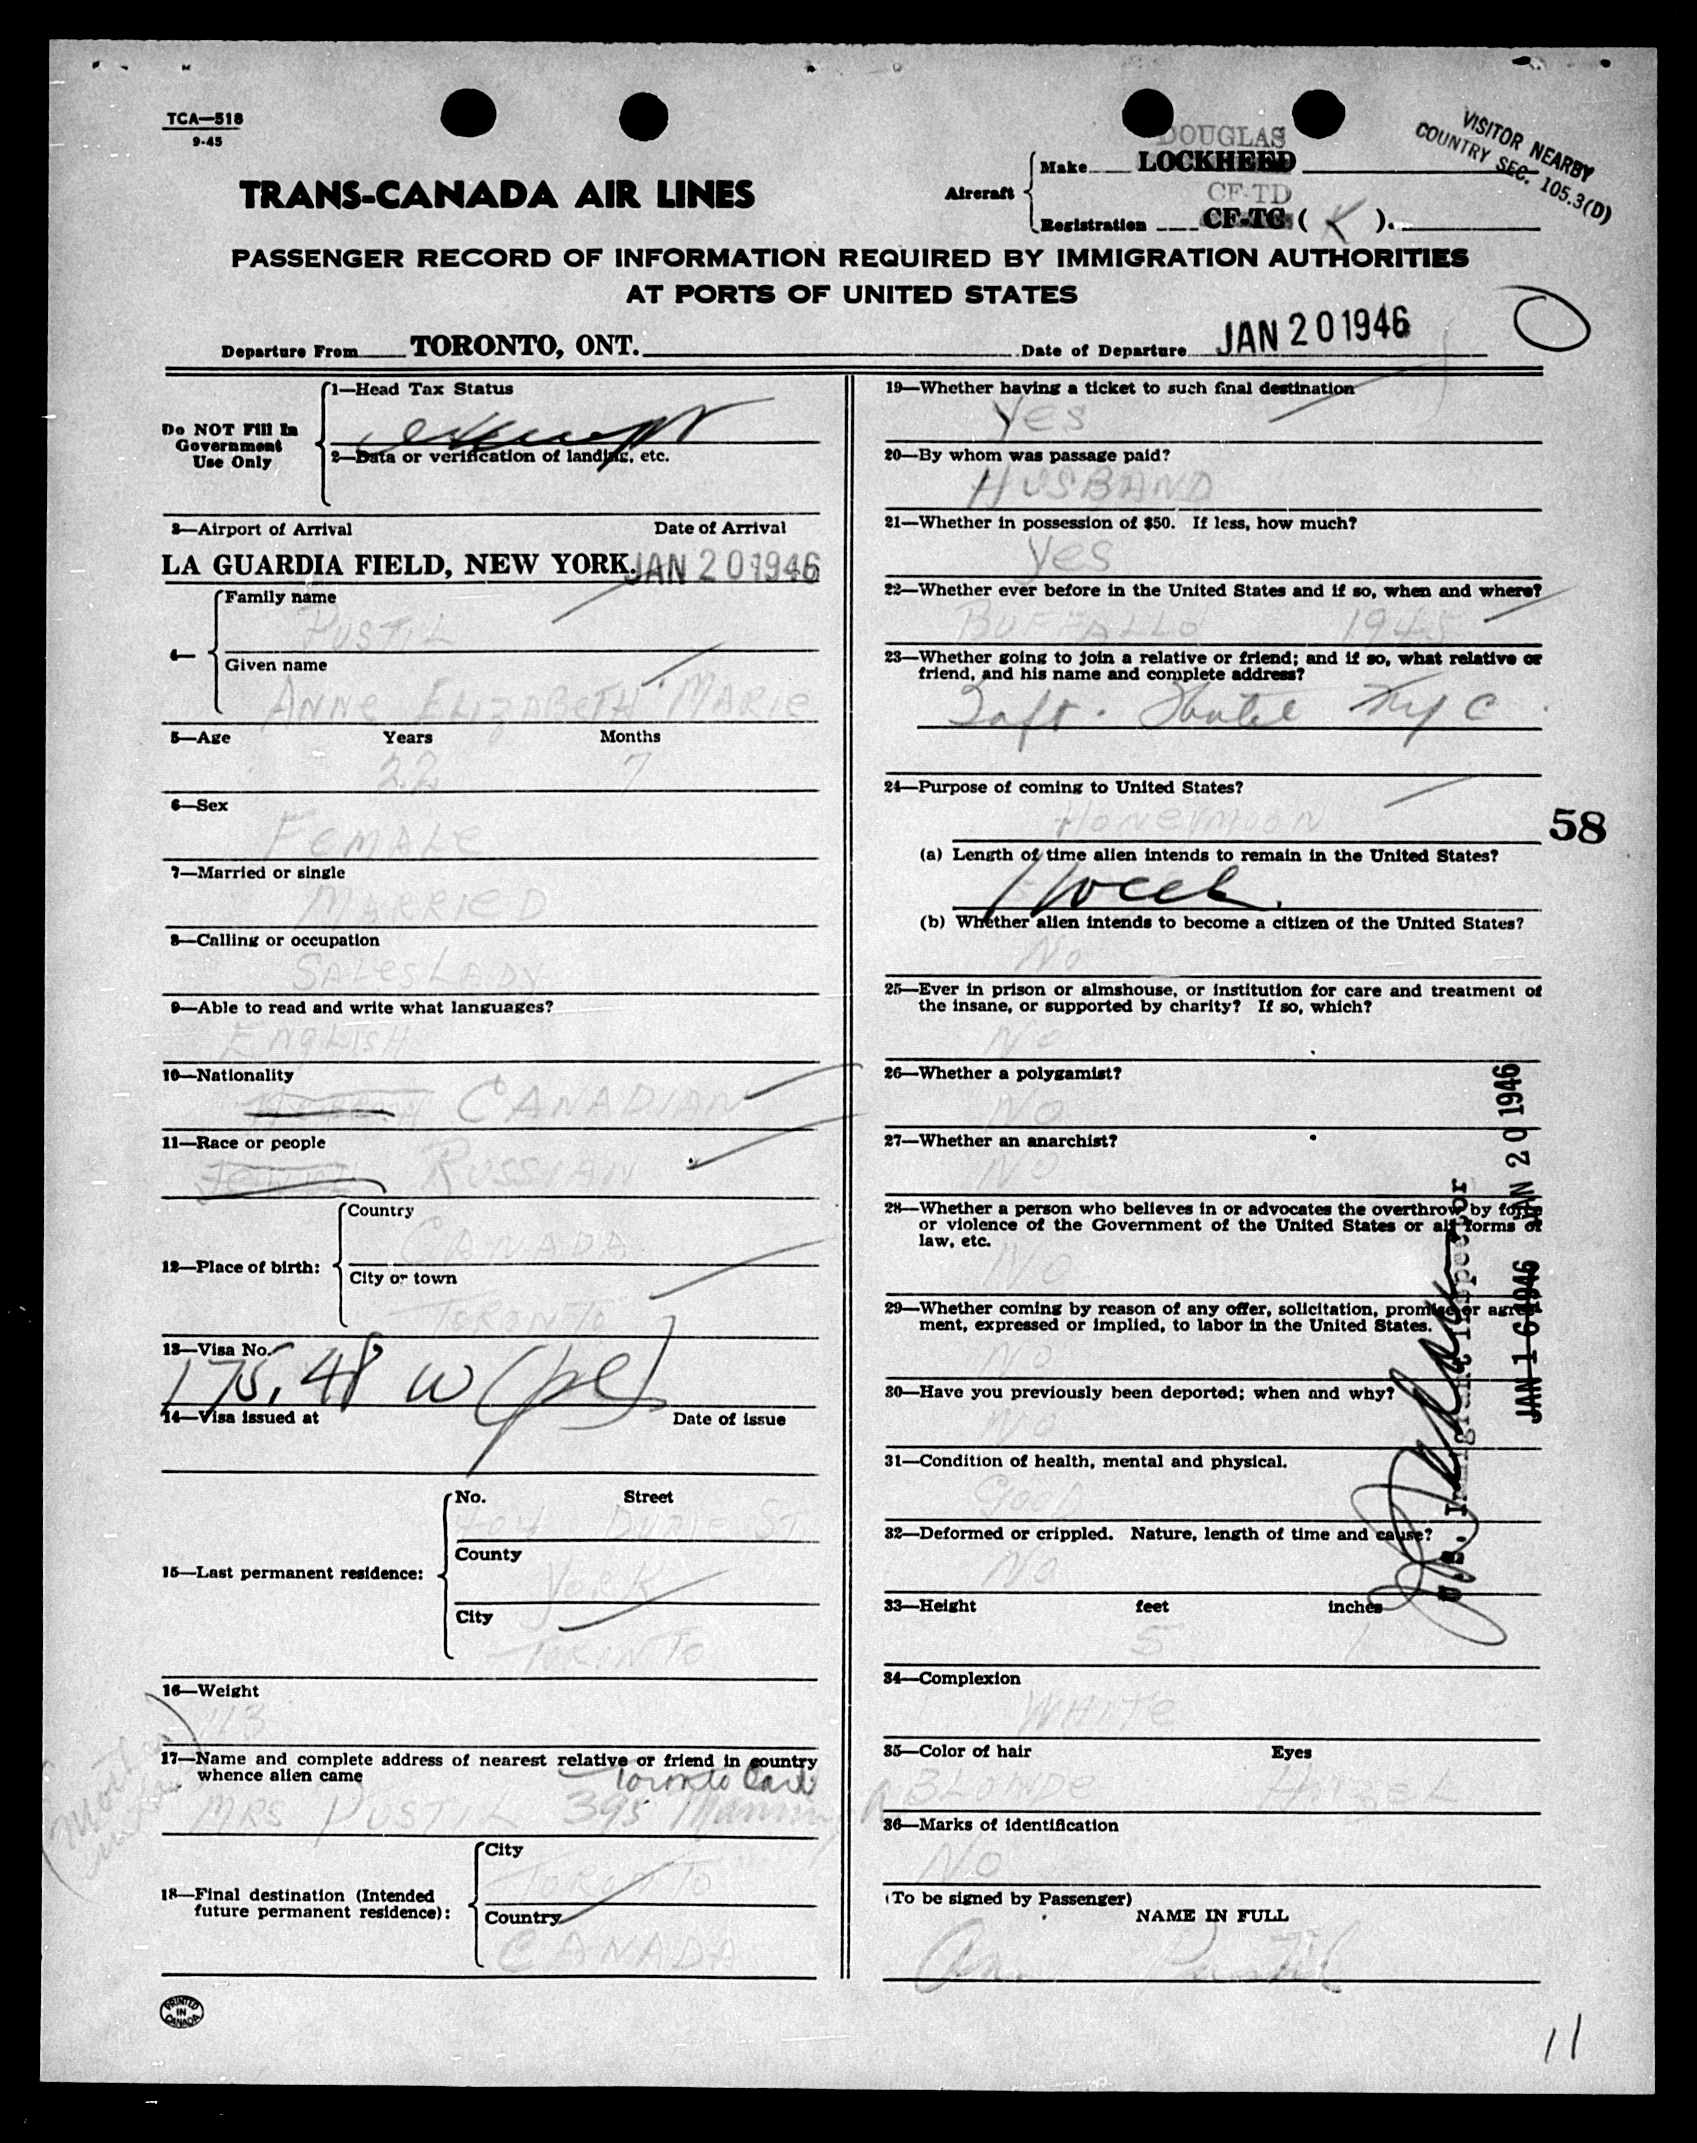 TCA—518
9-45
DOUGLAS
Aircraft
Make LOCKHEED
VISITOR NEARBY
COUNTRY SEC. 105.3(D)
TRANS-CANADA AIR LINES
CF-TD
Registration CF-TC ( K ).
PASSENGER RECORD OF INFORMATION REQUIRED BY IMMIGRATION AUTHORITIES
AT PORTS OF UNITED STATES
Departure From TORONTO, ONT. Date of Departure JAN 20 1946
Do NOT Fill In
Government
Use Only
1—Head Tax Status
exempt
2—Data or verification of landing, etc.
3—Airport of Arrival Date of Arrival
LA GUARDIA FIELD, NEW YORK. JAN 20 1946
4—
Family name
PUSTIL
Given name
ANNE ELIZABETH MARIE
5—Age Years Months
22 7
6—Sex
FEMALE
7—Married or single
MARRIED
8—Calling or occupation
SALESLADY
9—Able to read and write what languages?
ENGLISH
10—Nationality
CANADIAN
11—Race or people
RUSSIAN
12—Place of birth:
Country
CANADA
City or town
TORONTO
13—Visa No.
175.48 w (pl)
14—Visa issued at Date of issue
15—Last permanent residence:
No. Street
ST
County
YORK
City
TORONTO
16—Weight
113
17—Name and complete address of nearest relative or friend in country
whence alien came
Toronto
MRS PUSTIL 395 Manning
18—Final destination (Intended
future permanent residence):
City
TORONTO
Country
CANADA
PRINTED
IN
CANADA
19—Whether having a ticket to such final destination
Yes
20—By whom was passage paid?
HUSBAND
21—Whether in possession of $50. If less, how much?
Yes
22—Whether ever before in the United States and if so, when and where?
BUFFALLO 1945
23—Whether going to join a relative or friend; and if so, what relative or
friend, and his name and complete address?
Taft. Hotel NYC
24—Purpose of coming to United States?
HONEYMOON
58
(a) Length of time alien intends to remain in the United States?
1 week.
(b) Whether alien intends to become a citizen of the United States?
No
25—Ever in prison or almshouse, or institution for care and treatment of
the insane, or supported by charity? If so, which?
No
26—Whether a polygamist?
No
27—Whether an anarchist?
NO
28—Whether a person who believes in or advocates the overthrow by force
or violence of the Government of the United States or all forms of
law, etc.
NO
29—Whether coming by reason of any offer, solicitation, promise or agree-
ment, expressed or implied, to labor in the United States.
NO
30—Have you previously been deported; when and why?
NO
31—Condition of health, mental and physical.
Good
32—Deformed or crippled. Nature, length of time and cause?
No
33—Height feet inches
5 1
34—Complexion
WHITE
35—Color of hair Eyes
BLONDE HAZEL
36—Marks of identification
No
(To be signed by Passenger)
NAME IN FULL
Ann Pustil
U.S. Immigrant Inspector
JAN 16 1946
JAN 20 1946
11